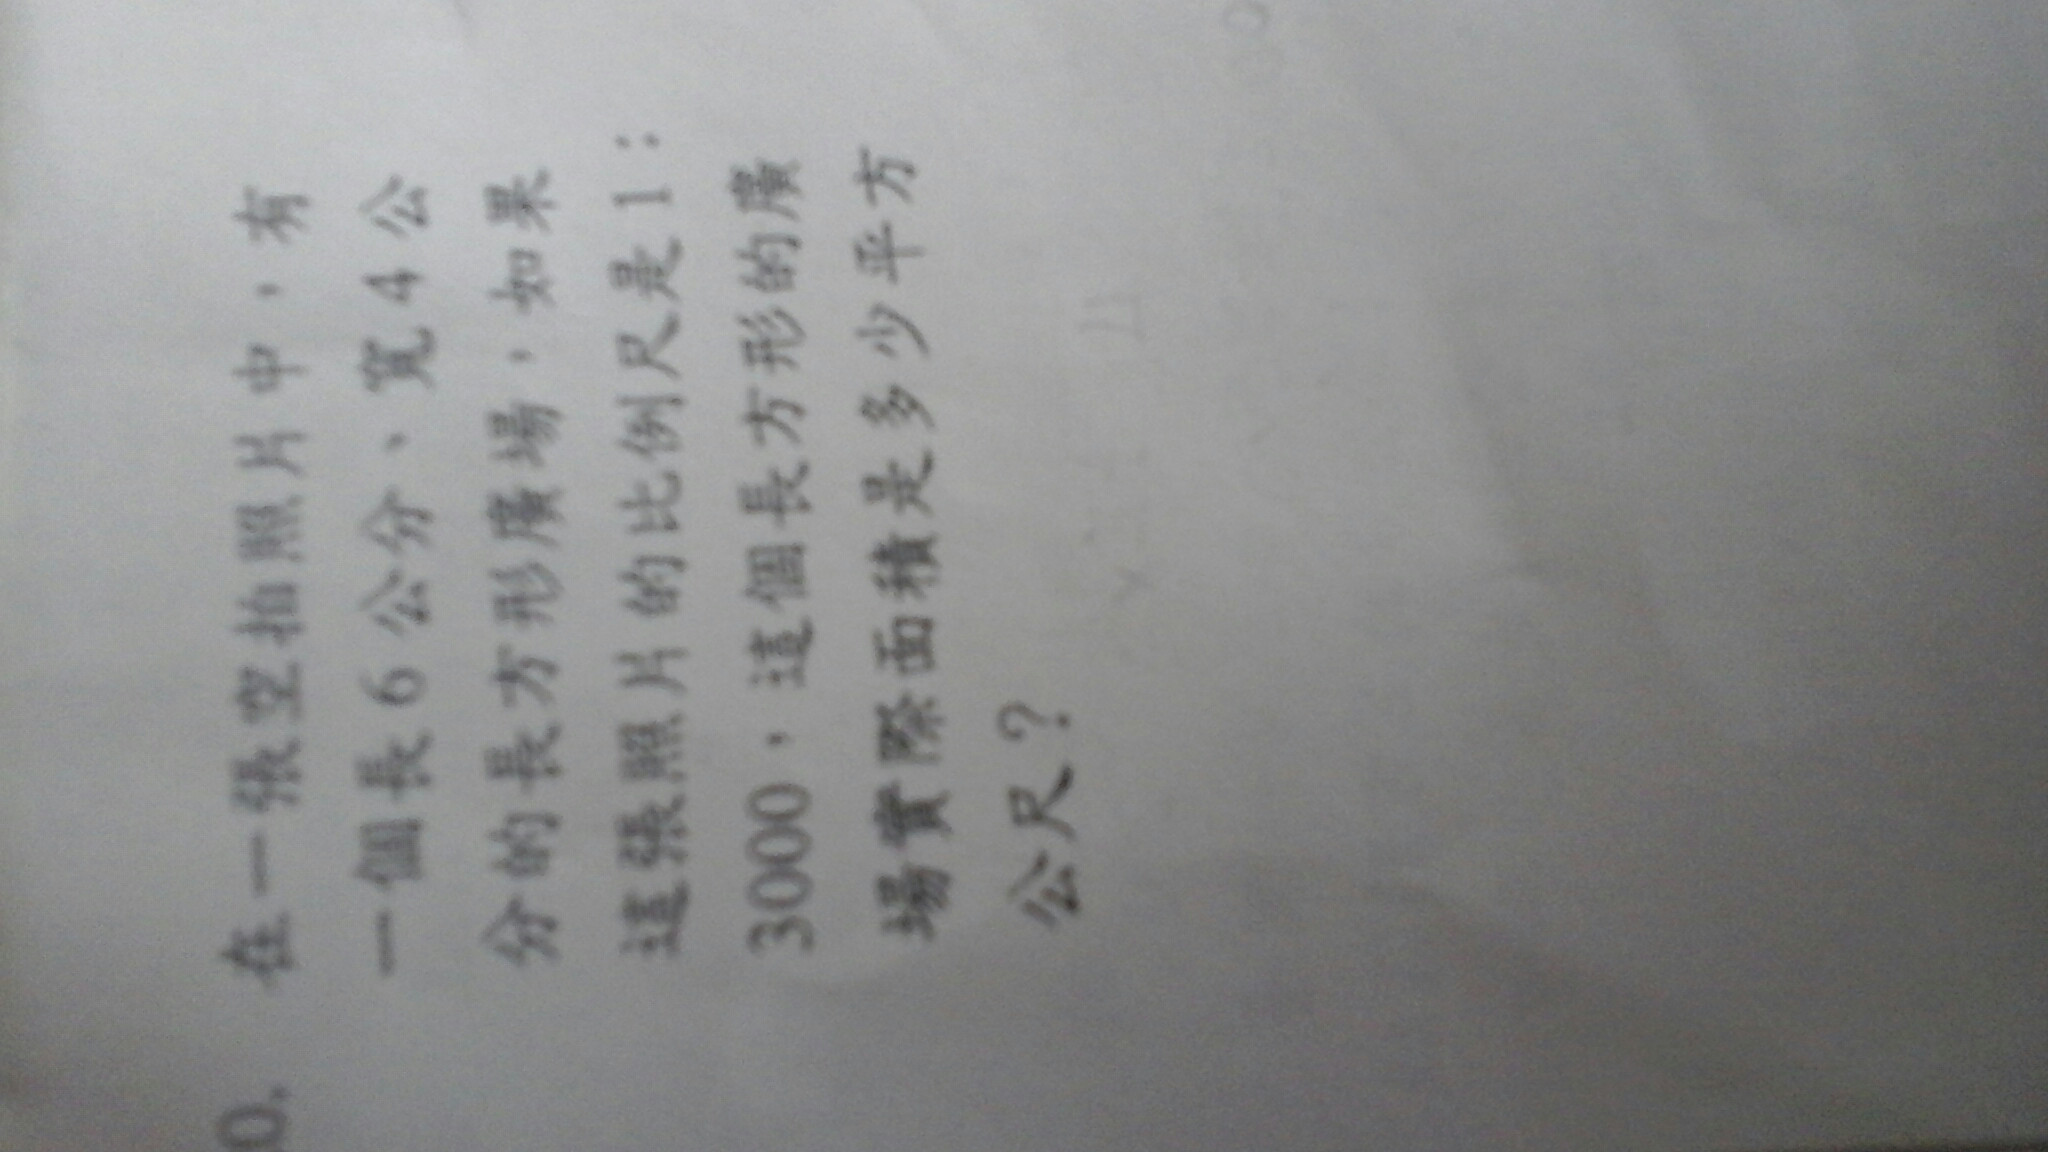 0. 在一張空拍照片中，有
一個長6公分、寬4公
分的長方形廣場，如果
這張照片的比例尺是1：
3000，這個長方形的廣
場實際面積是多少平方
公尺？